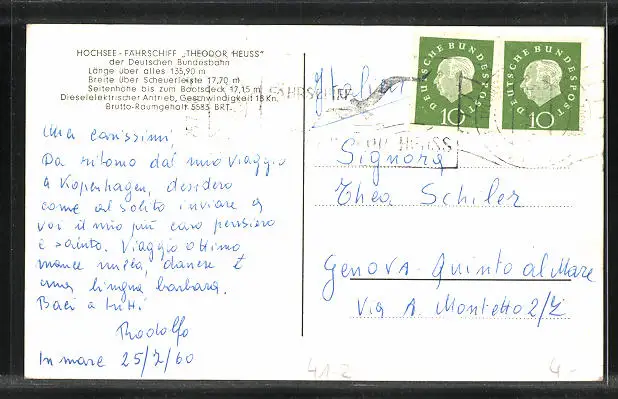 HOCHSEE-FÄHRSCHIFF „THEODOR HEUSS"
der Deutschen Bundesbahn
Länge über alles 135,90 m
Breite über Scheuerleiste 17,70 m
Seitenhöhe bis zum Bootsdeck 17,15 m
Dieselelektrischer Antrieb, Geschwindigkeit 18 Kn.
Brutto-Raumgehalt 5583 BRT.
Miei carissimi,
Da ritorno dal mio viaggio
a Kopenhagen, desidero
come al solito inviare a
voi il mio più caro pensiero
e saluto. Viaggio ottimo
danese è
una lingua barbara.
Baci a tutti
Rodolfo
In mare 25/7/60
Italien
DEUTSCHE BUNDESPOST
10
DEUTSCHE BUNDESPOST
10
FÄHRSCHIFF
HEUSS
Signora
Thea Schiler
GENOVA - Quinto al Mare
Via A. Montetto 2/2
41-2
4-